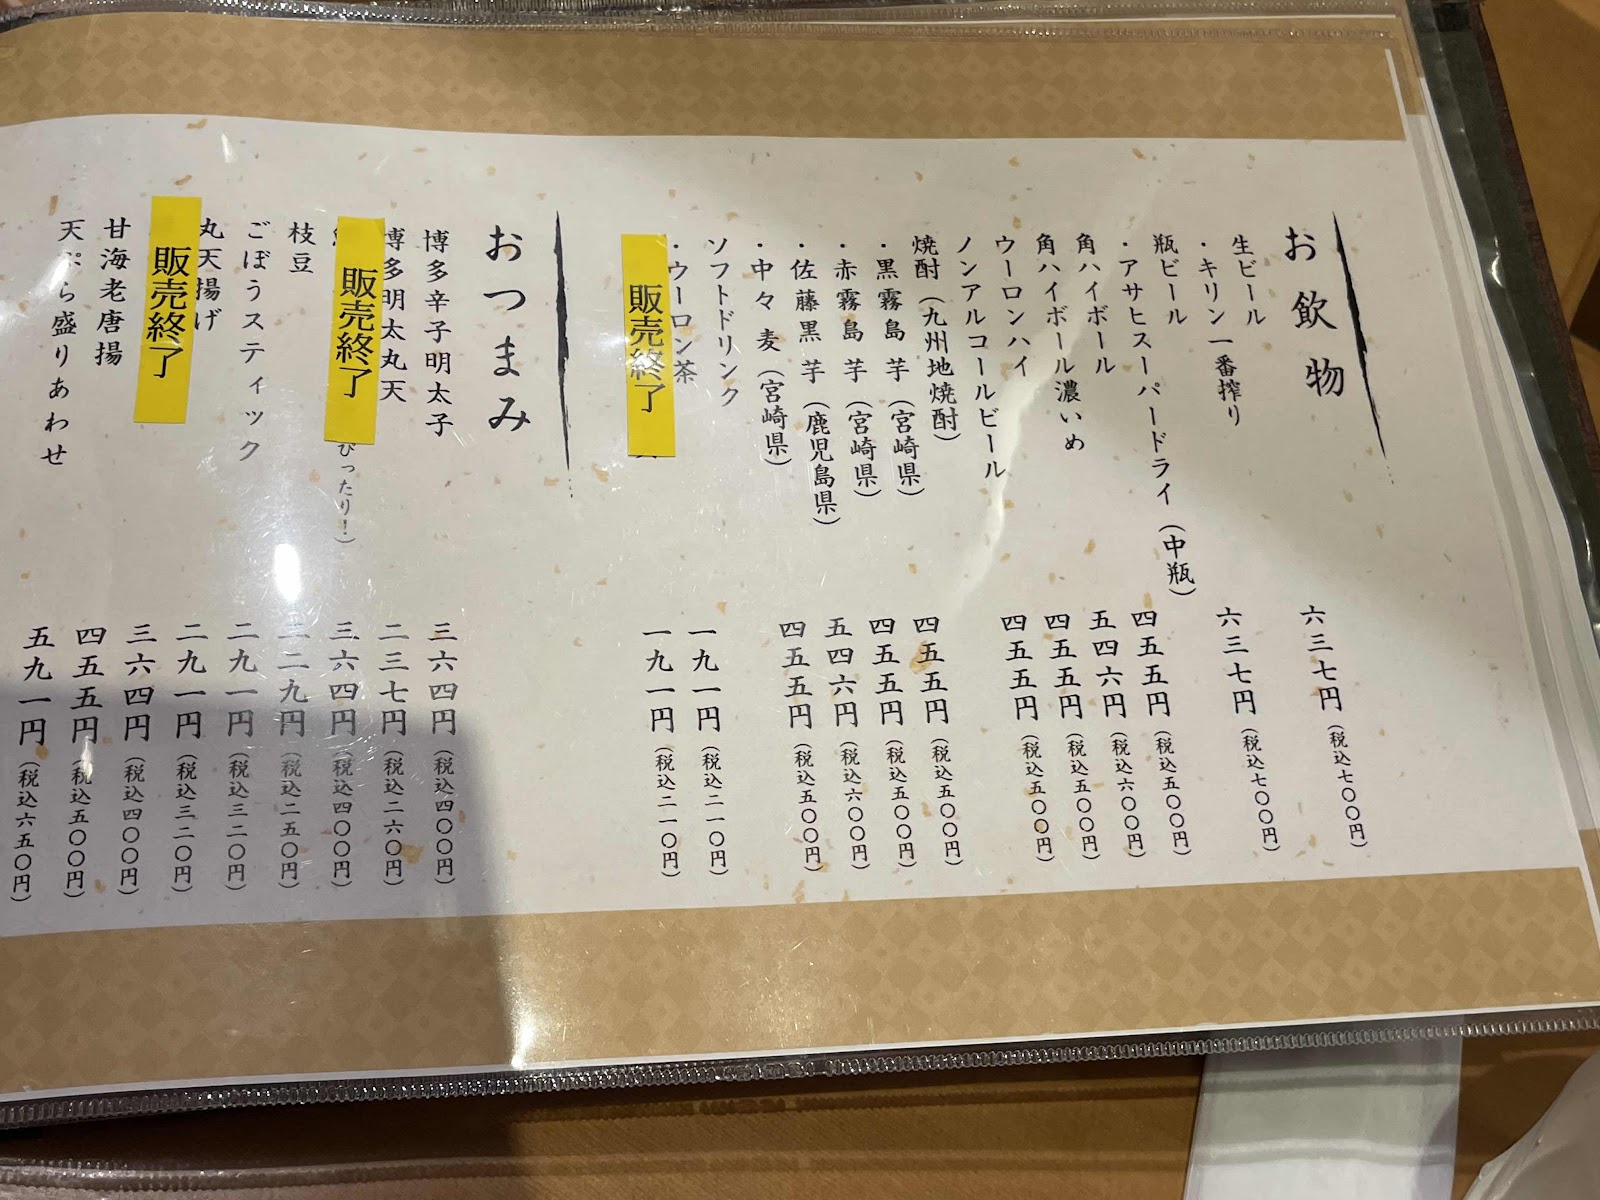 お飲物
生ビール
・キリン一番搾り 六三七円（税込七〇〇円）
瓶ビール
・アサヒスーパードライ（中瓶） 六三七円（税込七〇〇円）
角ハイボール 四五五円（税込五〇〇円）
角ハイボール濃いめ 五四六円（税込六〇〇円）
ウーロンハイ 四五五円（税込五〇〇円）
ノンアルコールビール 四五五円（税込五〇〇円）
焼酎（九州地焼酎）
・黒霧島 芋（宮崎県） 四五五円（税込五〇〇円）
・赤霧島 芋（宮崎県） 四五五円（税込五〇〇円）
・佐藤黒 芋（鹿児島県） 五四六円（税込六〇〇円）
・中々 麦（宮崎県） 四五五円（税込五〇〇円）
ソフトドリンク
・ウーロン茶 一九一円（税込二一〇円）
販売終了 一九一円（税込二一〇円）
おつまみ
博多辛子明太子 三六四円（税込四〇〇円）
博多明太丸天 二三七円（税込二六〇円）
販売終了 ぴったり！） 三六四円（税込四〇〇円）
枝豆 二二九円（税込二五〇円）
ごぼうスティック 二九一円（税込三二〇円）
丸天揚げ 二九一円（税込三二〇円）
販売終了 三六四円（税込四〇〇円）
甘海老唐揚 四五五円（税込五〇〇円）
天ぷら盛りあわせ 五九一円（税込六五〇円）